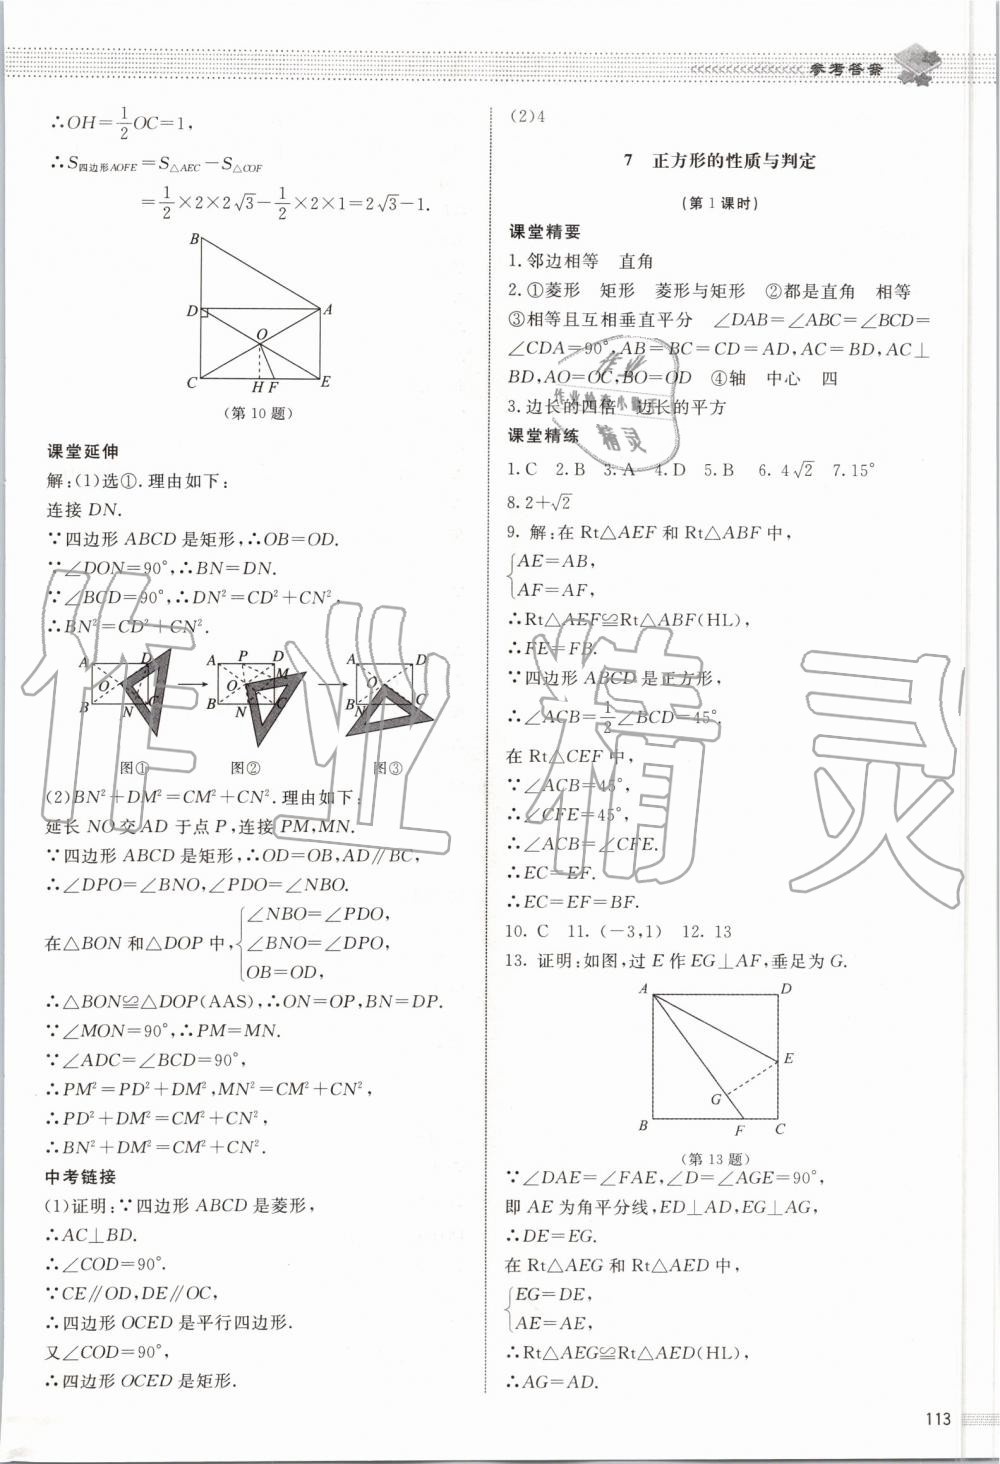 参考答案
∴OH=1/2OC=1,
∴S四边形AOFE=S△AEC-S△COF
=1/2×2×2√3-1/2×2×1=2√3-1.
B
D A
O
C H F E
(第10题)
课堂延伸
解:(1)选①.理由如下:
连接DN.
∵四边形ABCD是矩形,∴OB=OD.
∵∠DON=90°,∴BN=DN.
∵∠BCD=90°,∴DN²=CD²+CN²,
∴BN²=CD²+CN².
A D A P D A D
O O M O
B N C B N C B N C
图① 图② 图③
(2)BN²+DM²=CM²+CN².理由如下:
延长NO交AD于点P,连接PM,MN.
∵四边形ABCD是矩形,∴OD=OB,AD∥BC,
∴∠DPO=∠BNO,∠PDO=∠NBO.
在△BON和△DOP中,{∠NBO=∠PDO,
∠BNO=∠DPO,
OB=OD,
∴△BON≌△DOP(AAS),∴ON=OP,BN=DP.
∵∠MON=90°,∴PM=MN.
∵∠ADC=∠BCD=90°,
∴PM²=PD²+DM²,MN²=CM²+CN²,
∴PD²+DM²=CM²+CN²,
∴BN²+DM²=CM²+CN².
中考链接
(1)证明:∵四边形ABCD是菱形,
∴AC⊥BD.
∴∠COD=90°.
∵CE∥OD,DE∥OC,
∴四边形OCED是平行四边形.
又∠COD=90°,
∴四边形OCED是矩形.
(2)4
7 正方形的性质与判定
(第1课时)
课堂精要
1.邻边相等 直角
2.①菱形 矩形 菱形与矩形 ②都是直角 相等
③相等且互相垂直平分 ∠DAB=∠ABC=∠BCD=
∠CDA=90°,AB=BC=CD=AD,AC=BD,AC⊥
BD,AO=OC,BO=OD ④轴 中心 四
3.边长的四倍 边长的平方
课堂精练
1.C 2.B 3.A 4.D 5.B 6.4√2 7.15°
8.2+√2
9.解:在Rt△AEF和Rt△ABF中,
{AE=AB,
AF=AF,
∴Rt△AEF≌Rt△ABF(HL),
∴FE=FB.
∵四边形ABCD是正方形,
∴∠ACB=1/2∠BCD=45°.
在Rt△CEF中,
∵∠ACB=45°,
∴∠CFE=45°,
∴∠ACB=∠CFE.
∴EC=EF.
∴EC=EF=BF.
10.C 11.(-3,1) 12.13
13.证明:如图,过E作EG⊥AF,垂足为G.
A D
E
G
B F C
(第13题)
∵∠DAE=∠FAE,∠D=∠AGE=90°,
即AE为角平分线,ED⊥AD,EG⊥AG,
∴DE=EG.
在Rt△AEG和Rt△AED中,
{EG=DE,
AE=AE,
∴Rt△AEG≌Rt△AED(HL),
∴AG=AD.
113
作业精灵
作业
作业检查小助手
精灵